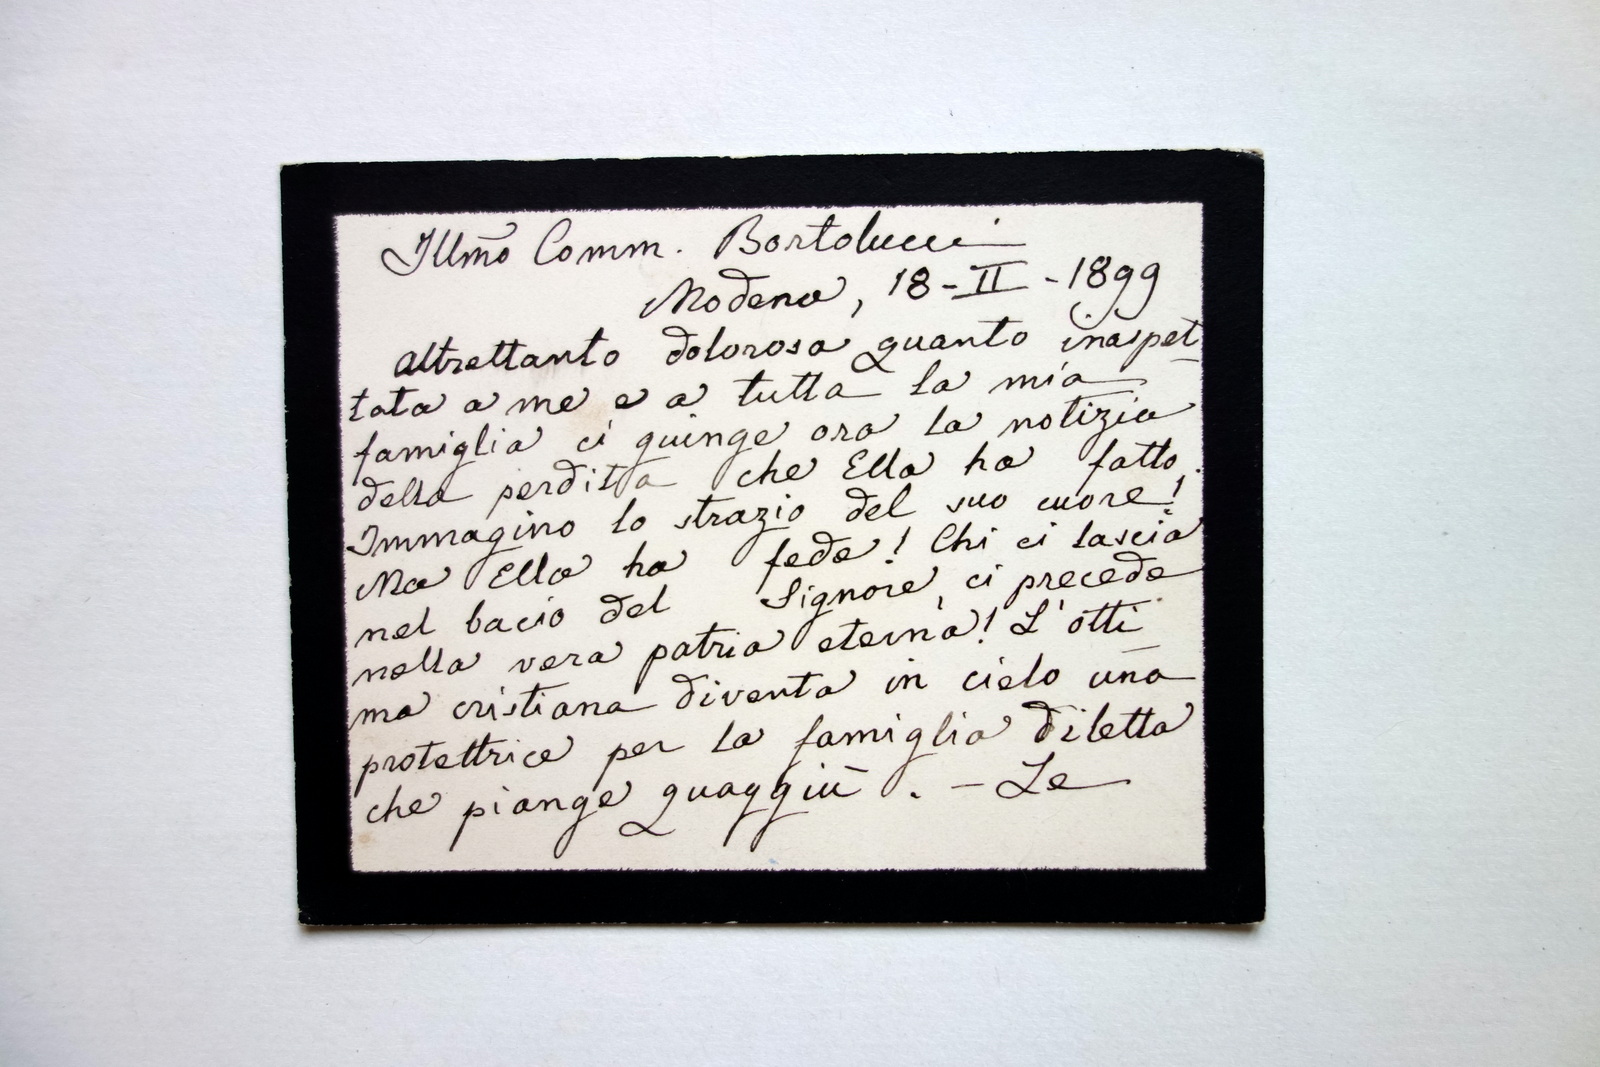 Illmō Comm. Bortolucci
Modena, 18-II-1899
Altrettanto dolorosa quanto inaspet-
tata a me e a tutta la mia
famiglia ci giunge ora la notizia
della perdita che Ella ha fatto.
Immagino lo strazio del suo cuore!
Ma Ella ha fede! Chi ci lascia
nel bacio del Signore, ci precede
nella vera patria eterna! L'otti-
ma cristiana diventa in cielo una
protettrice per la famiglia diletta
che piange quaggiù. - Le